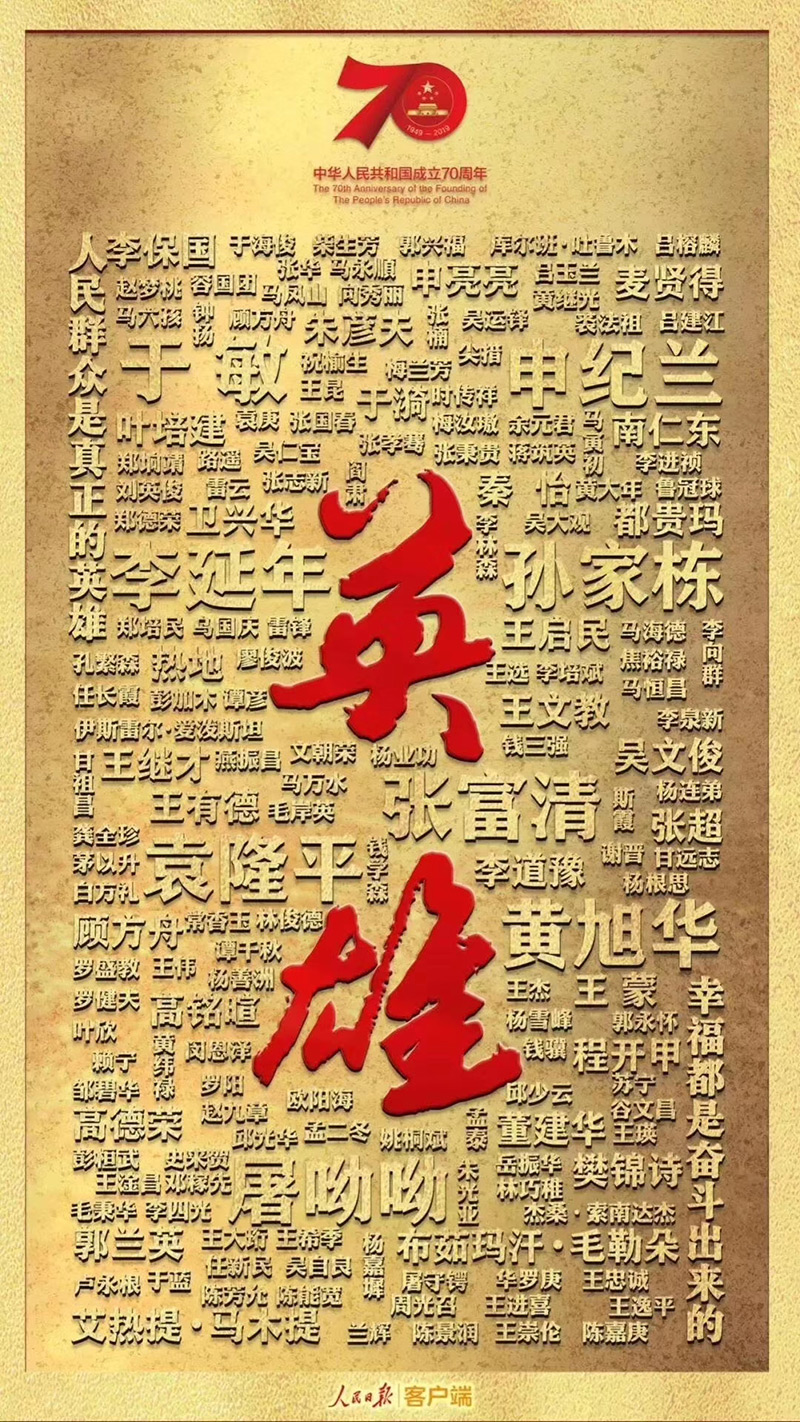 1949－2019
中华人民共和国成立70周年
The 70th Anniversary of the Founding of
The People's Republic of China
人民群众是真正的英雄
李保国 于海俊 柴生芳 郭兴福 库尔班·吐鲁木 吕榕麟
赵梦桃 容国团 张华 马永顺 申亮亮 吕玉兰 麦贤得
马六孩 钟扬 马凤山 向秀丽 黄继光
顾方舟 朱彦夫 张楠 吴运铎 裘法祖 吕建江
于敏 祝榆生 梅兰芳 申纪兰
王昆 于漪 时传祥
叶培建 袁庚 张国春 梅汝璈 余元君 马寅初 南仁东
郑垧靖 路遥 吴仁宝 张孝骞 张秉贵 蒋筑英 李进祯
刘英俊 雷云 张志新 阎肃 秦怡 黄大年 鲁冠球
郑德荣 卫兴华 李林森 吴大观 都贵玛
李延年 英 孙家栋
郑培民 乌国庆 雷锋 王启民 马海德 李向群
孔繁森 热地 廖俊波 王选 李培斌 焦裕禄
任长霞 彭加木 谭彦 王文教 马恒昌
伊斯雷尔·爱泼斯坦 李泉新
甘祖昌 王继才 燕振昌 文朝荣 杨业功 钱三强 吴文俊
王有德 马万水 毛岸英 张富清 斯霞 杨连弟
龚全珍 张超
茅以升 袁隆平 钱学森 李道豫 谢晋 甘远志
白万礼 杨根思
顾方舟 常香玉 林俊德 雄 黄旭华
罗盛教 王伟 谭千秋 杨善洲 王杰 王蒙
罗健夫 高铭暄 杨雪峰 郭永怀
叶欣 黄纬禄 闵恩泽 钱骥 程开甲
赖宁 邹碧华 罗阳 欧阳海 邱少云 苏宁
高德荣 赵九章 孟泰 董建华 谷文昌
邱光华 孟二冬 姚桐斌 王瑛
彭桓武 史来贺 朱光亚 岳振华 樊锦诗
王淦昌 邓稼先 屠呦呦 林巧稚
毛秉华 李四光 杰桑·索南达杰
郭兰英 王大珩 王希季 杨嘉墀 布茹玛汗·毛勒朵
任新民 吴自良
卢永根 于蓝 陈芳允 陈能宽 屠守锷 华罗庚 王忠诚
周光召 王进喜 王逸平
艾热提·马木提 兰辉 陈景润 王崇伦 陈嘉庚
幸福都是奋斗出来的
人民日报 客户端